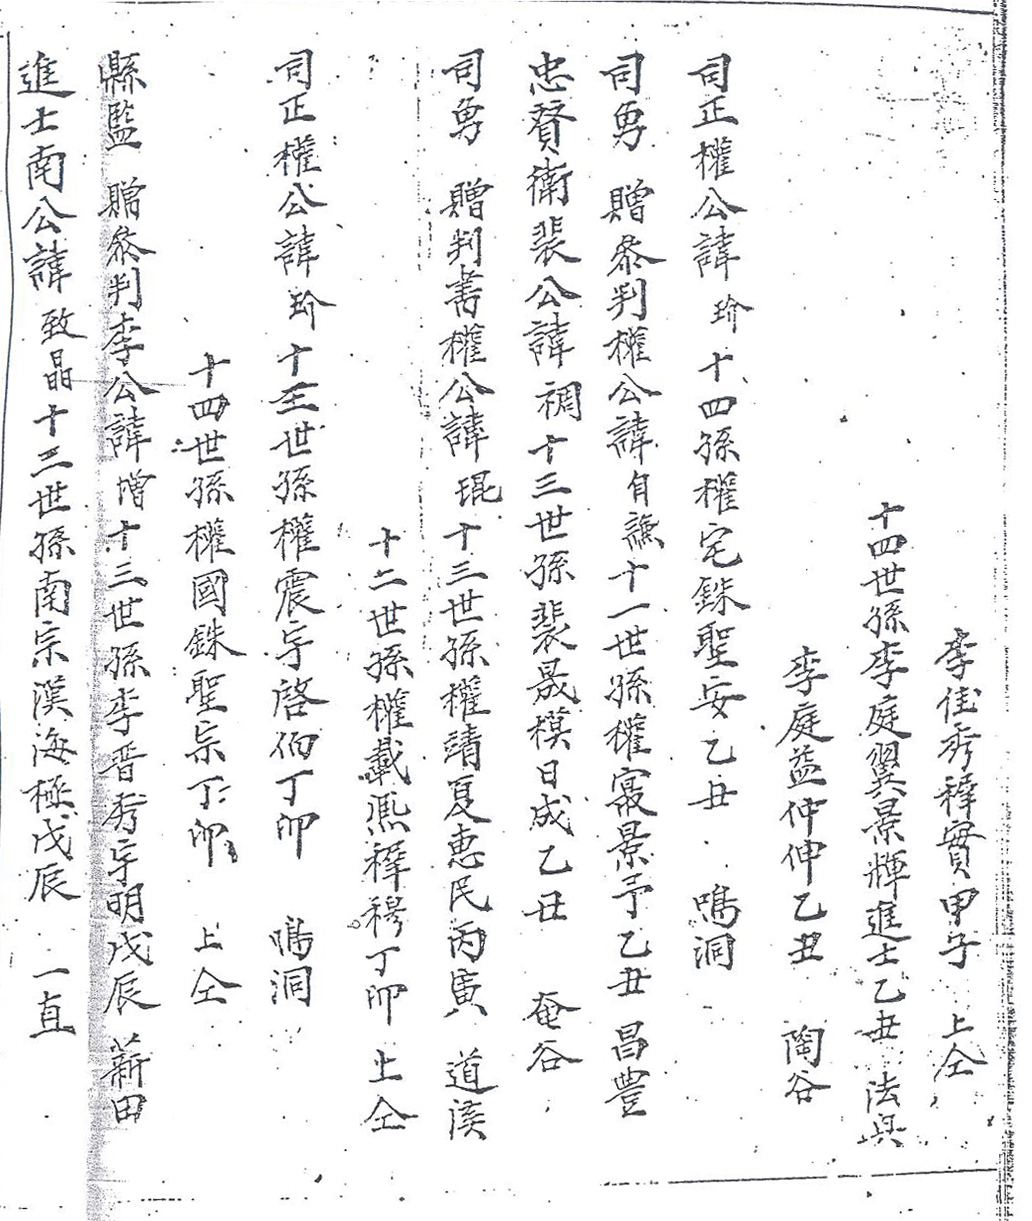 李佳秀穉實甲子 上仝
十四世孫李庭翼景輝進士乙丑 法興
李庭益仲伸乙丑 陶谷
司正權公諱玠十四孫權宅銖聖安乙丑 鳴洞
司勇 贈參判權公諱自謙十一世孫權寔景予乙丑 昌豊
忠贊衛裴公諱裯十三世孫裴晟模日成乙丑 奄谷
司勇 贈判書權公諱琨十三世孫權靖夏惠民丙寅 道溪
十二世孫權載熙穉穆丁卯 上仝
司正權公諱玠十三世孫權震宇啓伯丁卯 鳴洞
十四世孫權國銖聖宗丁卯 上仝
縣監 贈參判李公諱增十三世孫李晋秀宇明戊辰 薪田
進士南公諱致晶十三世孫南宗漢海極戊辰 一直